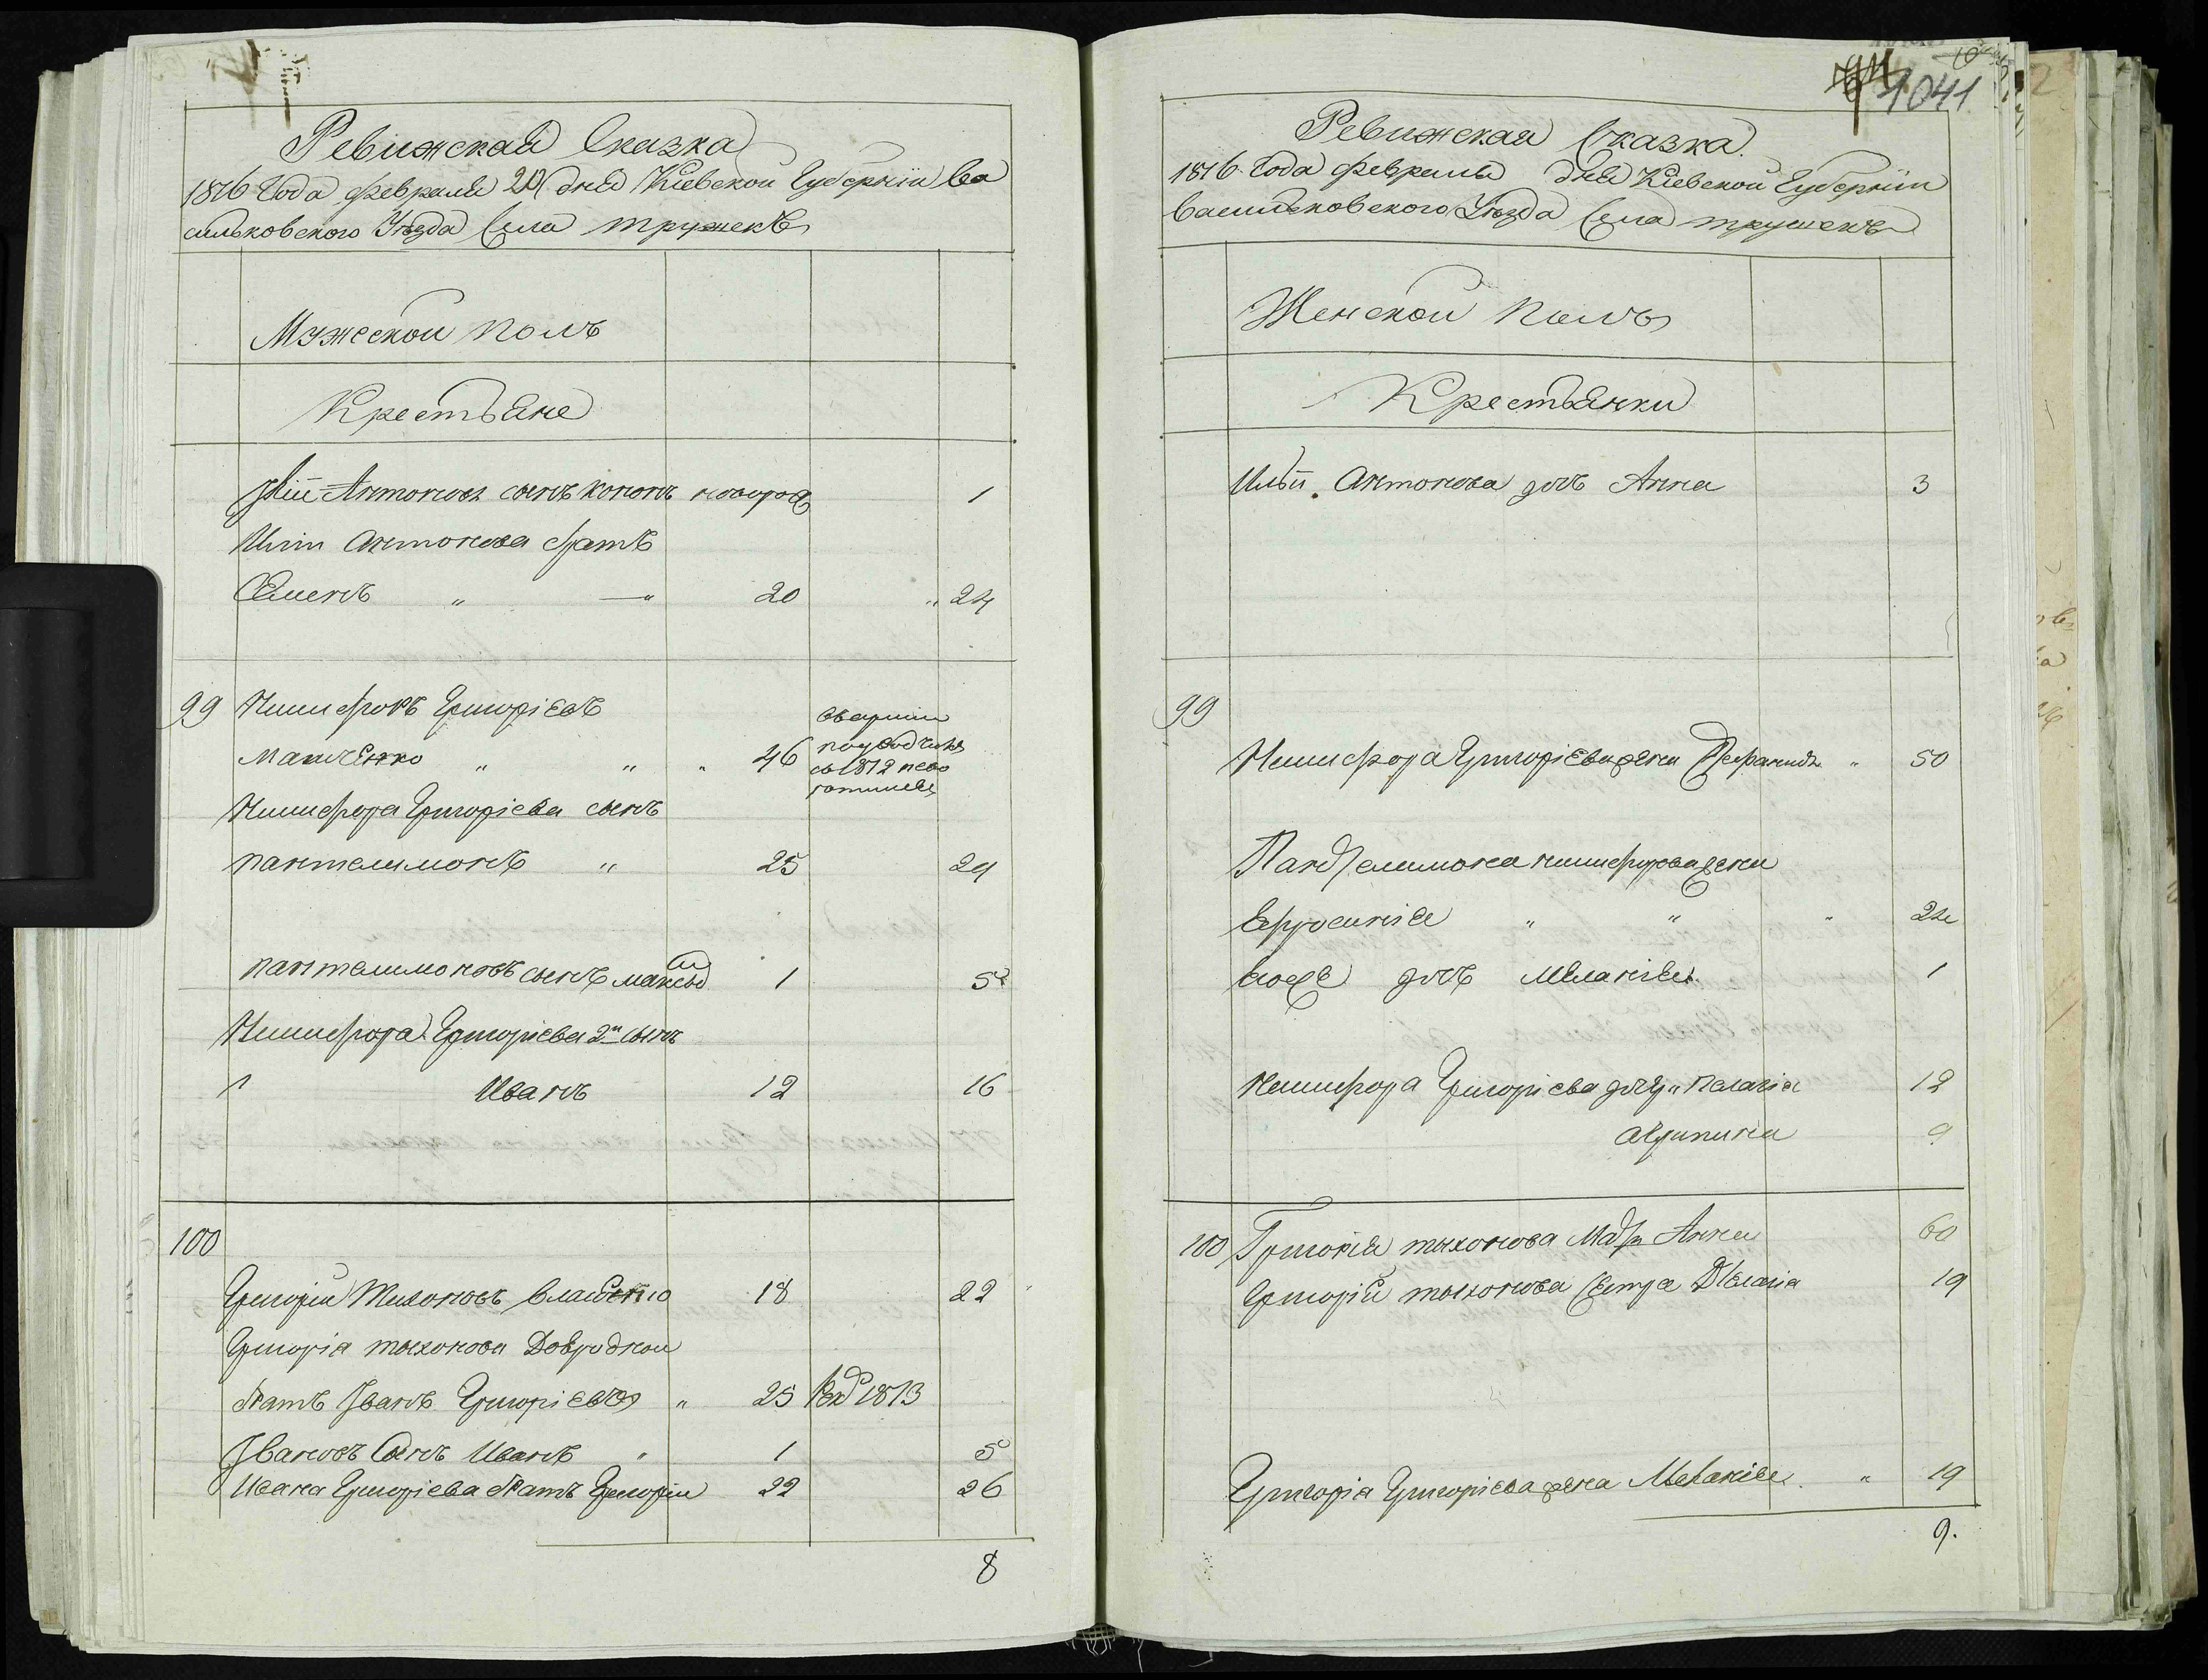 Ревижская Сказка
1816 Года февраля 20 дня Киевской Губернии Ва
сильковского Уезда Села тружекъ
Мужеской полъ
Крестьяне
Антоновъ сынъ кононъ новорож 1
антонова братъ
Семенъ " — " 20 " 24
99 Никифоръ Григоріевъ
" " " 46
съ 1812
Никифора Григоріева сынъ
пантелимонъ " 25 29
пантелимоновъ сынъ 1 5
Никифора Григоріева 2й сынъ
Иванъ 12 16
100
Григорій Тихоновъ Власенко 18 22
Григорія тихонова Двоюродной
братъ Іванъ Григоріевъ " 25 1813
Івановъ Сынъ Иванъ " 1 5
Ивана Григоріева братъ Григорій 22 26
8
1041
Ревижская Сказка.
1816 Года февраля дня Киевской Губернии
Васильковского Уезда Села трушекъ
Женской полъ
Крестьянки
Ильи антонова дочь Анна 3
99
Никифора Григоріева жена " 50
Пантелимона никифорова жена
Ефросинія " " " 24
дочь Меланія 1
Никифора Григоріева дочери пелагія 12
агрипина 9
100 Григорія тихонова Анна 60
Григорій тихонова Сестра 19
Григорія Григоріева жена Меланія " 19
9.